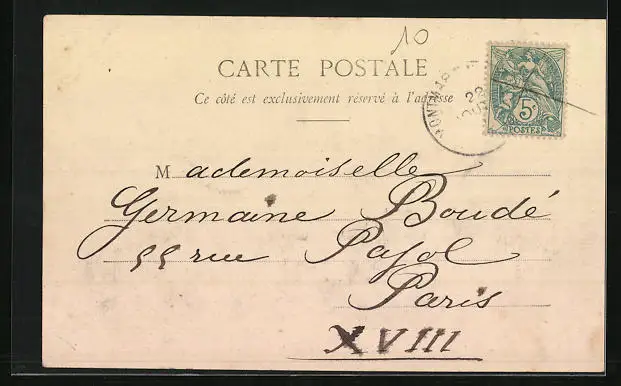 10
CARTE POSTALE
Ce côté est exclusivement réservé à l'adresse
22
5c
POSTES
Mademoiselle
Germaine Boudé
55 rue Pajol
Paris
XVIII